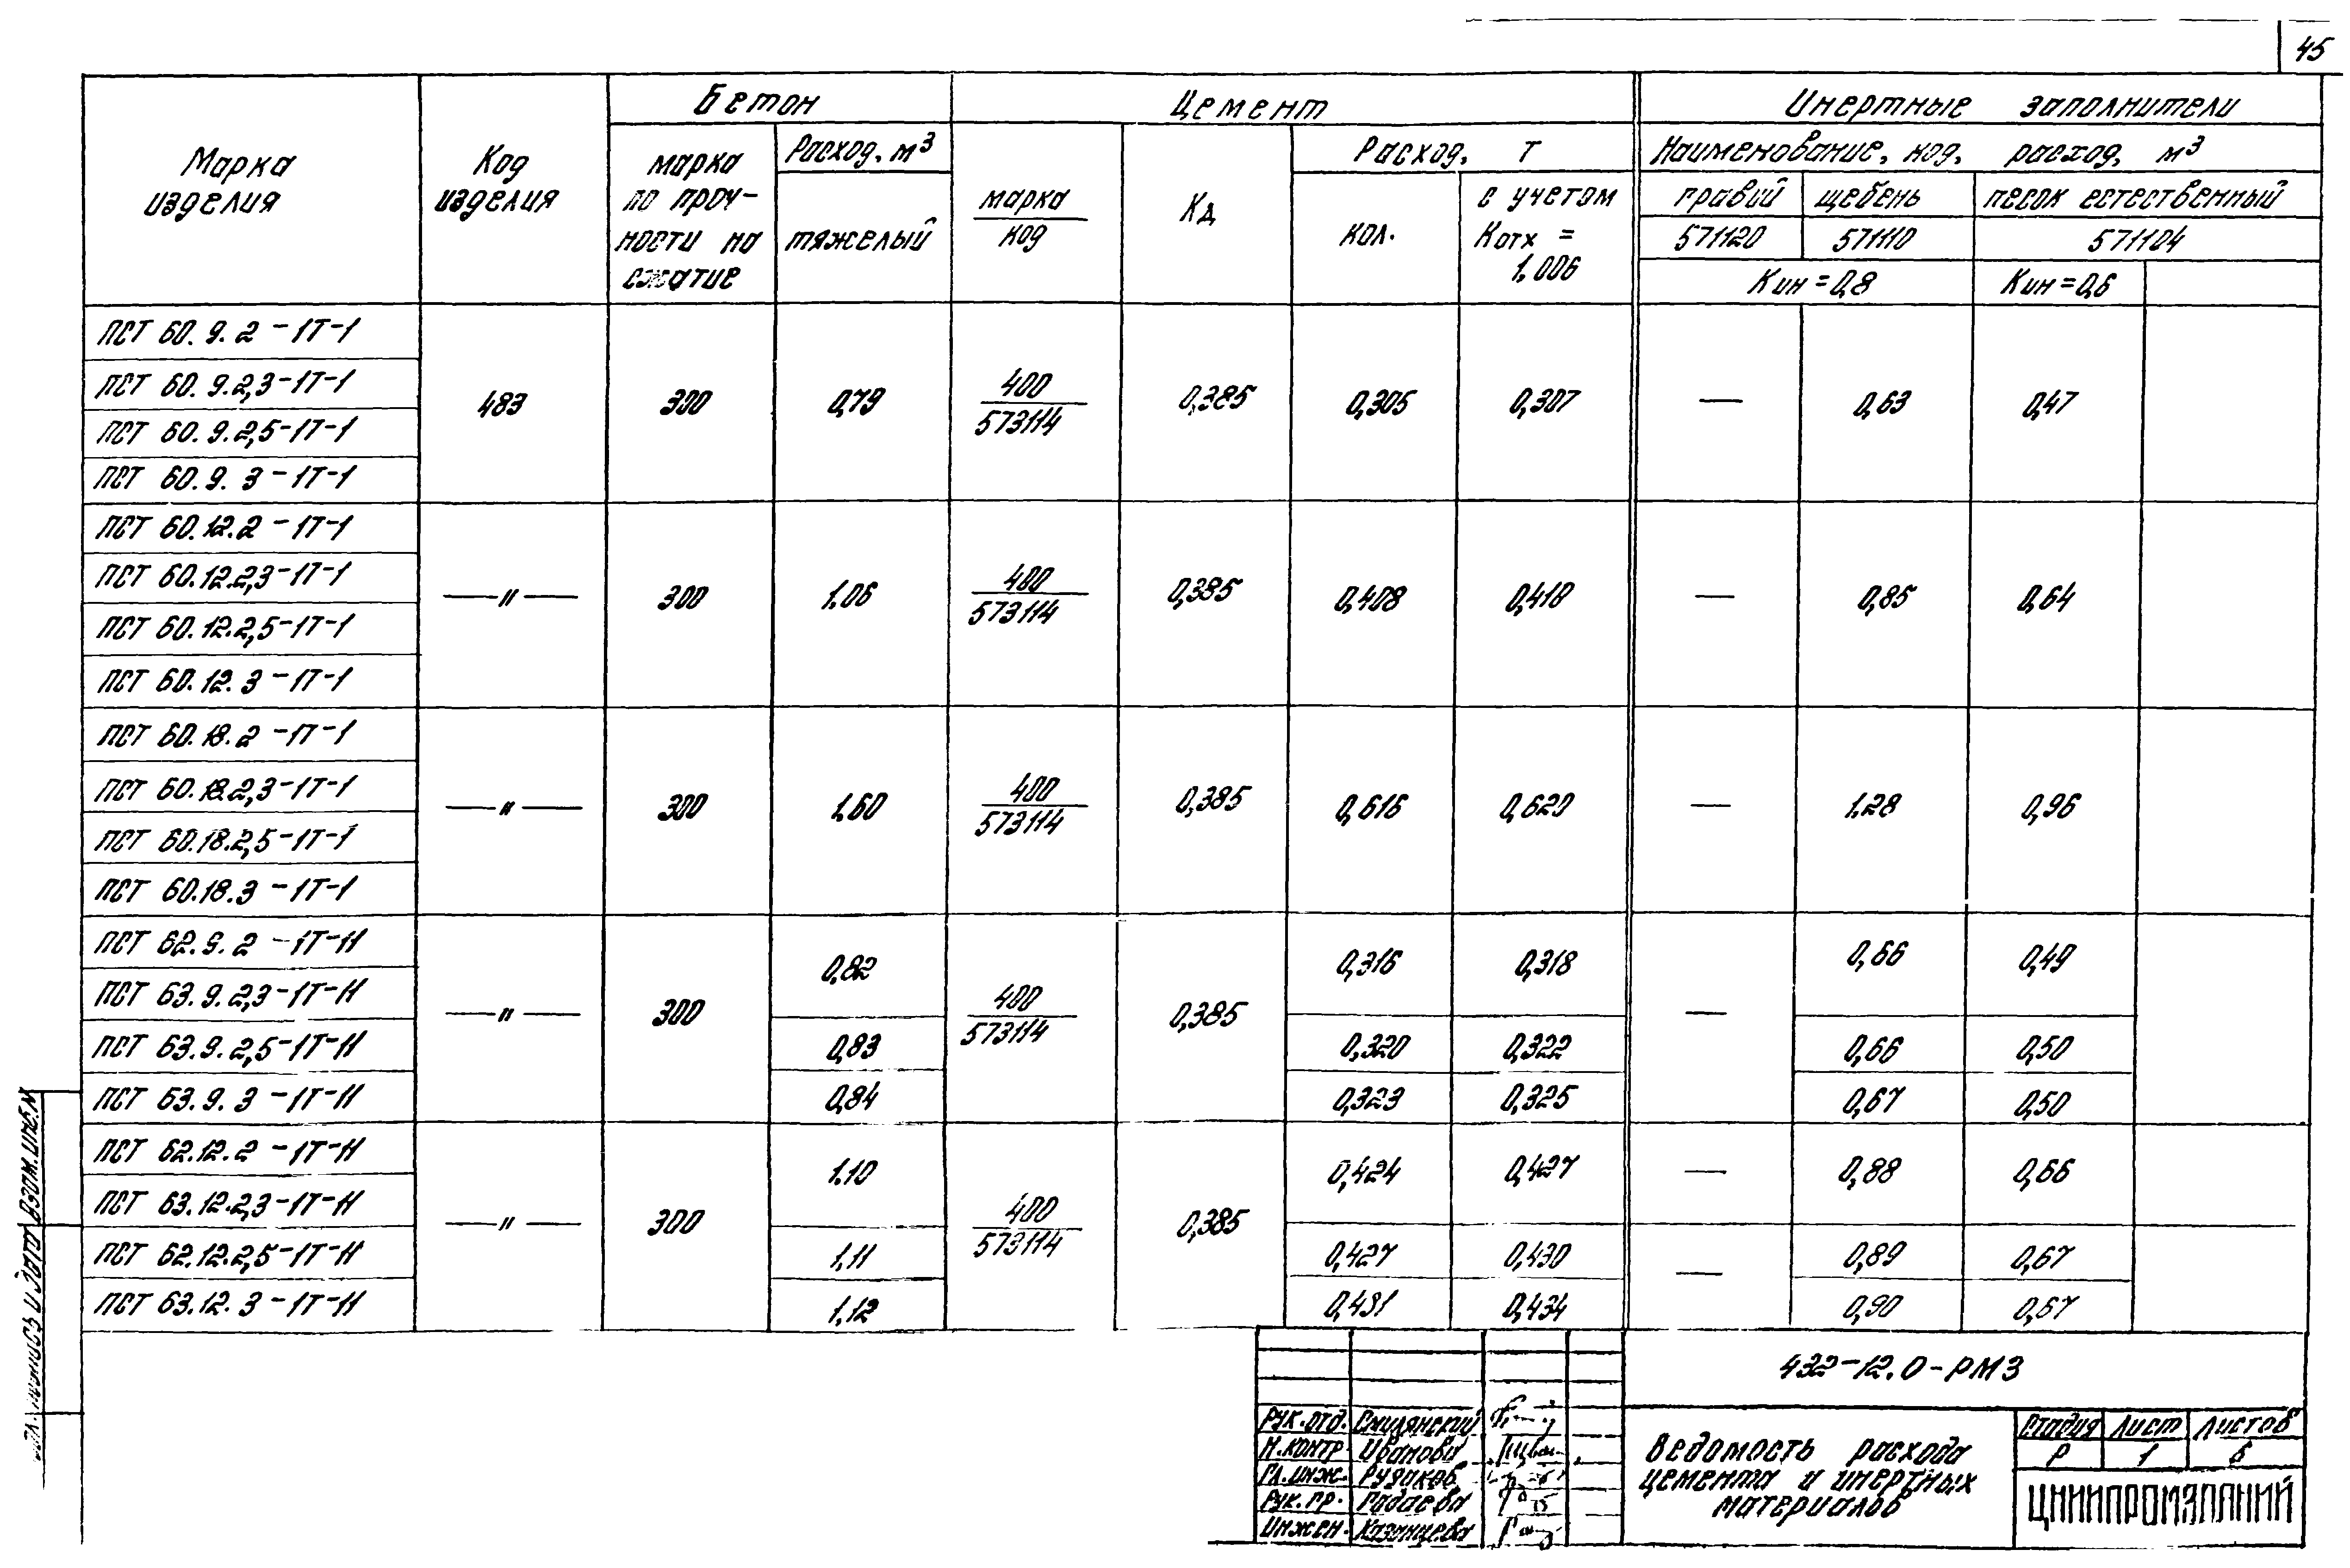 45
Бетон
Цемент
Инертные заполнители
Марка
изделия
Код
изделия
марка
по проч-
ности на
сжатие
Расход, м³
тяжелый
марка
код
Кд
Расход, т
кол.
с учетом
Котх =
1.006
Наименование, код, расход, м³
гравий
щебень
песок естественный
571120
571110
571104
Кин = 0,8
Кин = 0,6
ПСТ 60.9.2 -1Т-1
ПСТ 60.9.2,3-1Т-1
ПСТ 60.9.2,5-1Т-1
ПСТ 60.9.3 -1Т-1
483
300
0,79
400
573114
0,385
0,305
0,307
—
0,63
0,47
ПСТ 60.12.2 -1Т-1
ПСТ 60.12.2,3-1Т-1
ПСТ 60.12.2,5-1Т-1
ПСТ 60.12.3 -1Т-1
—"—
300
1.06
400
573114
0,385
0,408
0,410
—
0,85
0,64
ПСТ 60.18.2 -1Т-1
ПСТ 60.18.2,3-1Т-1
ПСТ 60.18.2,5-1Т-1
ПСТ 60.18.3 -1Т-1
—"—
300
1.60
400
573114
0,385
0,616
0,620
—
1.28
0,96
ПСТ 62.9.2 -1Т-11
ПСТ 63.9.2,3-1Т-11
ПСТ 63.9.2,5-1Т-11
ПСТ 63.9.3 -1Т-11
—"—
300
0,82
0,83
0,84
400
573114
0,385
0,316
0,318
0,320
0,322
0,323
0,325
—
0,66
0,49
0,66
0,50
0,67
0,50
ПСТ 62.12.2 -1Т-11
ПСТ 63.12.2,3-1Т-11
ПСТ 62.12.2,5-1Т-11
ПСТ 63.12.3 -1Т-11
—"—
300
1.10
1.11
1.12
400
573114
0,385
0,424
0,427
0,427
0,430
0,431
0,434
—
0,88
0,66
—
0,89
0,67
0,90
0,67
432-12.0-РМ3
Рук.отд. Смилянский
Н.контр. Иванова
Гл.инж. Рудаков
Рук.гр. Гадаева
Инжен. Казанцева
Ведомость расхода
цемента и инертных
материалов
Стадия Лист Листов
Р 1 6
ЦНИИПРОМЗДАНИЙ
подпись и дата
Взам.инв.N